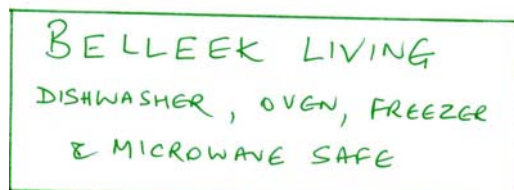 BELLEEK LIVING
DISHWASHER, OVEN, FREEZER
& MICROWAVE SAFE